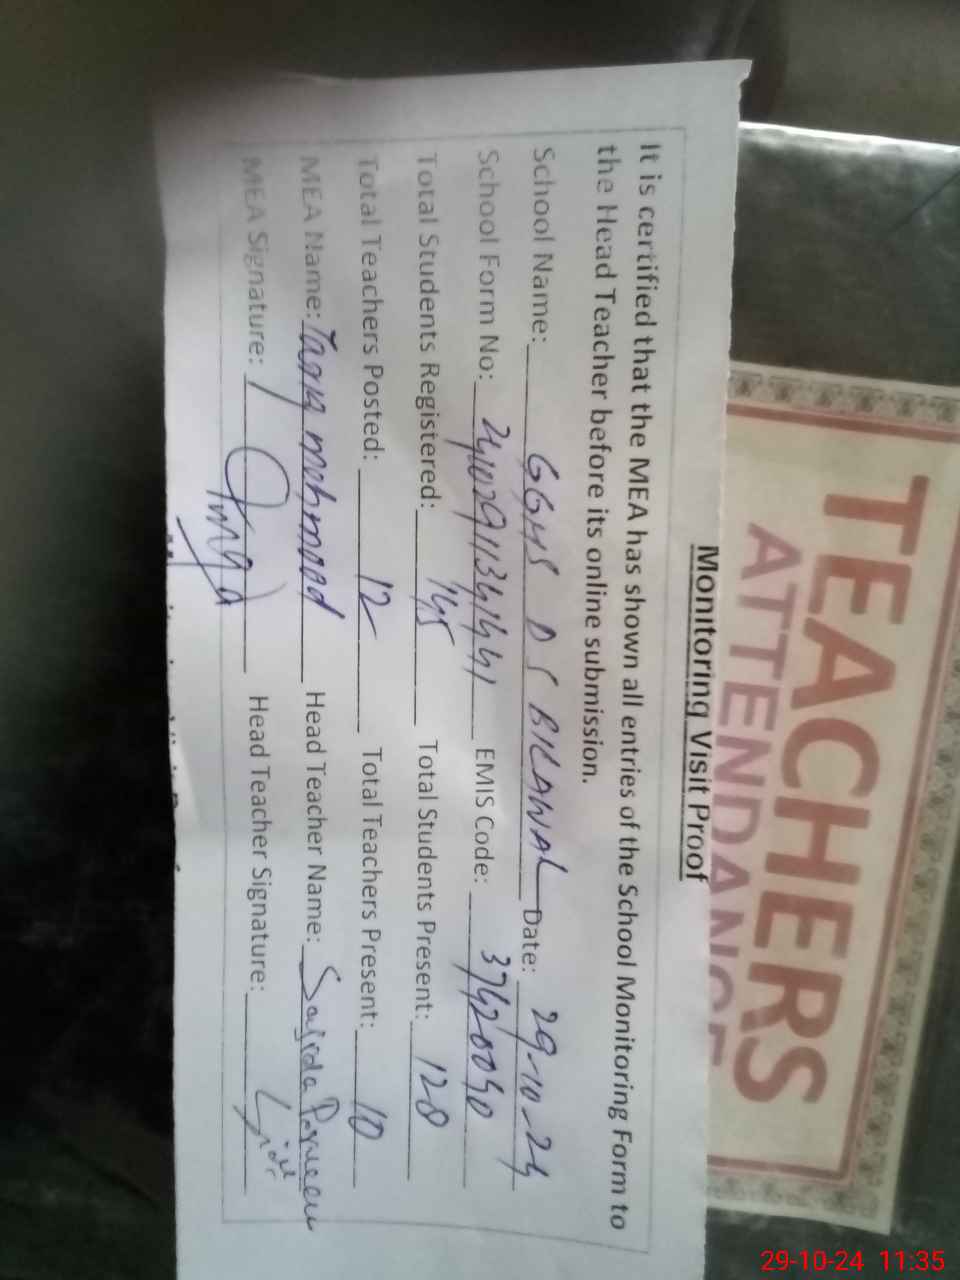 TEACHERS
ATTENDANCE
Monitoring Visit Proof
It is certified that the MEA has shown all entries of the School Monitoring Form to
the Head Teacher before its online submission.
School Name: GGHS D S BILAWAL Date: 29-10-24
School Form No: EMIS Code: 37420040
Total Students Registered: 145 Total Students Present: 128
Total Teachers Posted: 12 Total Teachers Present: 10
MEA Name: Tariq mehmood Head Teacher Name: Sajida Parveen
MEA Signature: Head Teacher Signature:
29-10-24 11:35